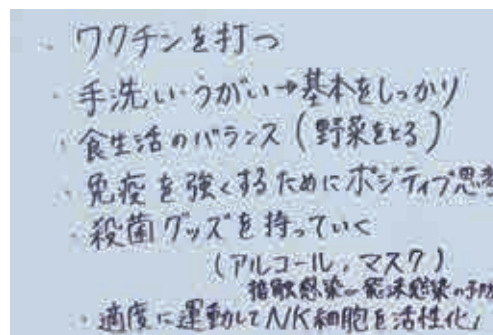 ・ワクチンを打つ
・手洗い・うがい→基本をしっかり
・食生活のバランス(野菜をとる)
・免疫を強くするためにポジティブ思考
・殺菌グッズを持っていく
(アルコール,マスク)
接触感染 飛沫感染の予防
・適度に運動してNK細胞を活性化